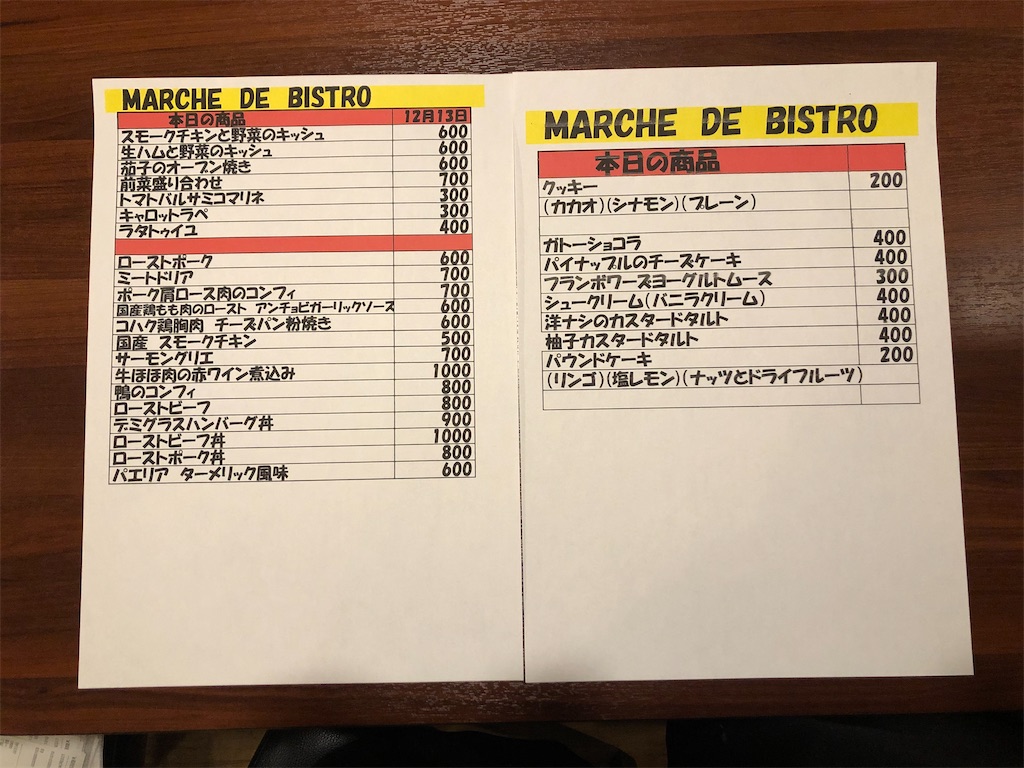 MARCHE DE BISTRO
本日の商品 12月13日
スモークチキンと野菜のキッシュ 600
生ハムと野菜のキッシュ 600
茄子のオーブン焼き 600
前菜盛り合わせ 700
トマトバルサミコマリネ 300
キャロットラペ 300
ラタトゥイユ 400
ローストポーク 600
ミートドリア 700
ポーク肩ロース肉のコンフィ 700
国産鶏もも肉のロースト アンチョビガーリックソース 600
コハク鶏胸肉 チーズパン粉焼き 600
国産 スモークチキン 500
サーモングリエ 700
牛ほほ肉の赤ワイン煮込み 1000
鴨のコンフィ 800
ローストビーフ 800
デミグラスハンバーグ丼 900
ローストビーフ丼 1000
ローストポーク丼 800
パエリア ターメリック風味 600
MARCHE DE BISTRO
本日の商品
クッキー 200
(カカオ)(シナモン)(プレーン)
ガトーショコラ 400
パイナップルのチーズケーキ 400
フランボワーズヨーグルトムース 300
シュークリーム(バニラクリーム) 400
洋ナシのカスタードタルト 400
柚子カスタードタルト 400
パウンドケーキ 200
(リンゴ)(塩レモン)(ナッツとドライフルーツ)